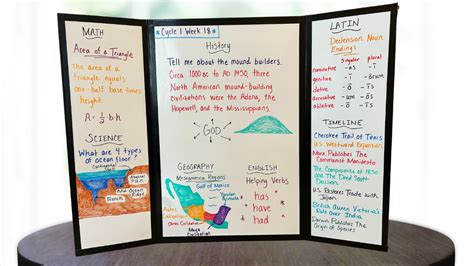 MATH
Area of a Triangle
The area of a
triangle equals
one-half base times
height.
A = ½ b h
SCIENCE
What are 4 types
of ocean floor
Continental
Abyssal
Plain
Mid Ocean
Ridges
Trench
☆ Cycle 1 Week 18 ☆
History
Tell me about the mound builders.
Circa 1000 BC to AD 1450, three
North American mound-building
civilizations were the Adena, the
Hopewell, and the Mississippians.
GOD
GEOGRAPHY
Mesoamerica Regions
Gulf of Mexico
Yucatan
Peninsula
Maya
Civilization
ENGLISH
Helping Verbs
has
have
had
LATIN
Declension Noun
Endings
Singular plural
nominative -as
genitive
dative
ablative
TIMELINE
Cherokee Trail of Tears
U.S. Westward Expansion
Marx Publishes The
Communist Manifesto
The Compromise of 1850
and The Dred Scott
Decision
U.S. Restores Trade with
Japan
British Queen Victoria's
Rule Over India
Darwin Publishes The
Origin of Species